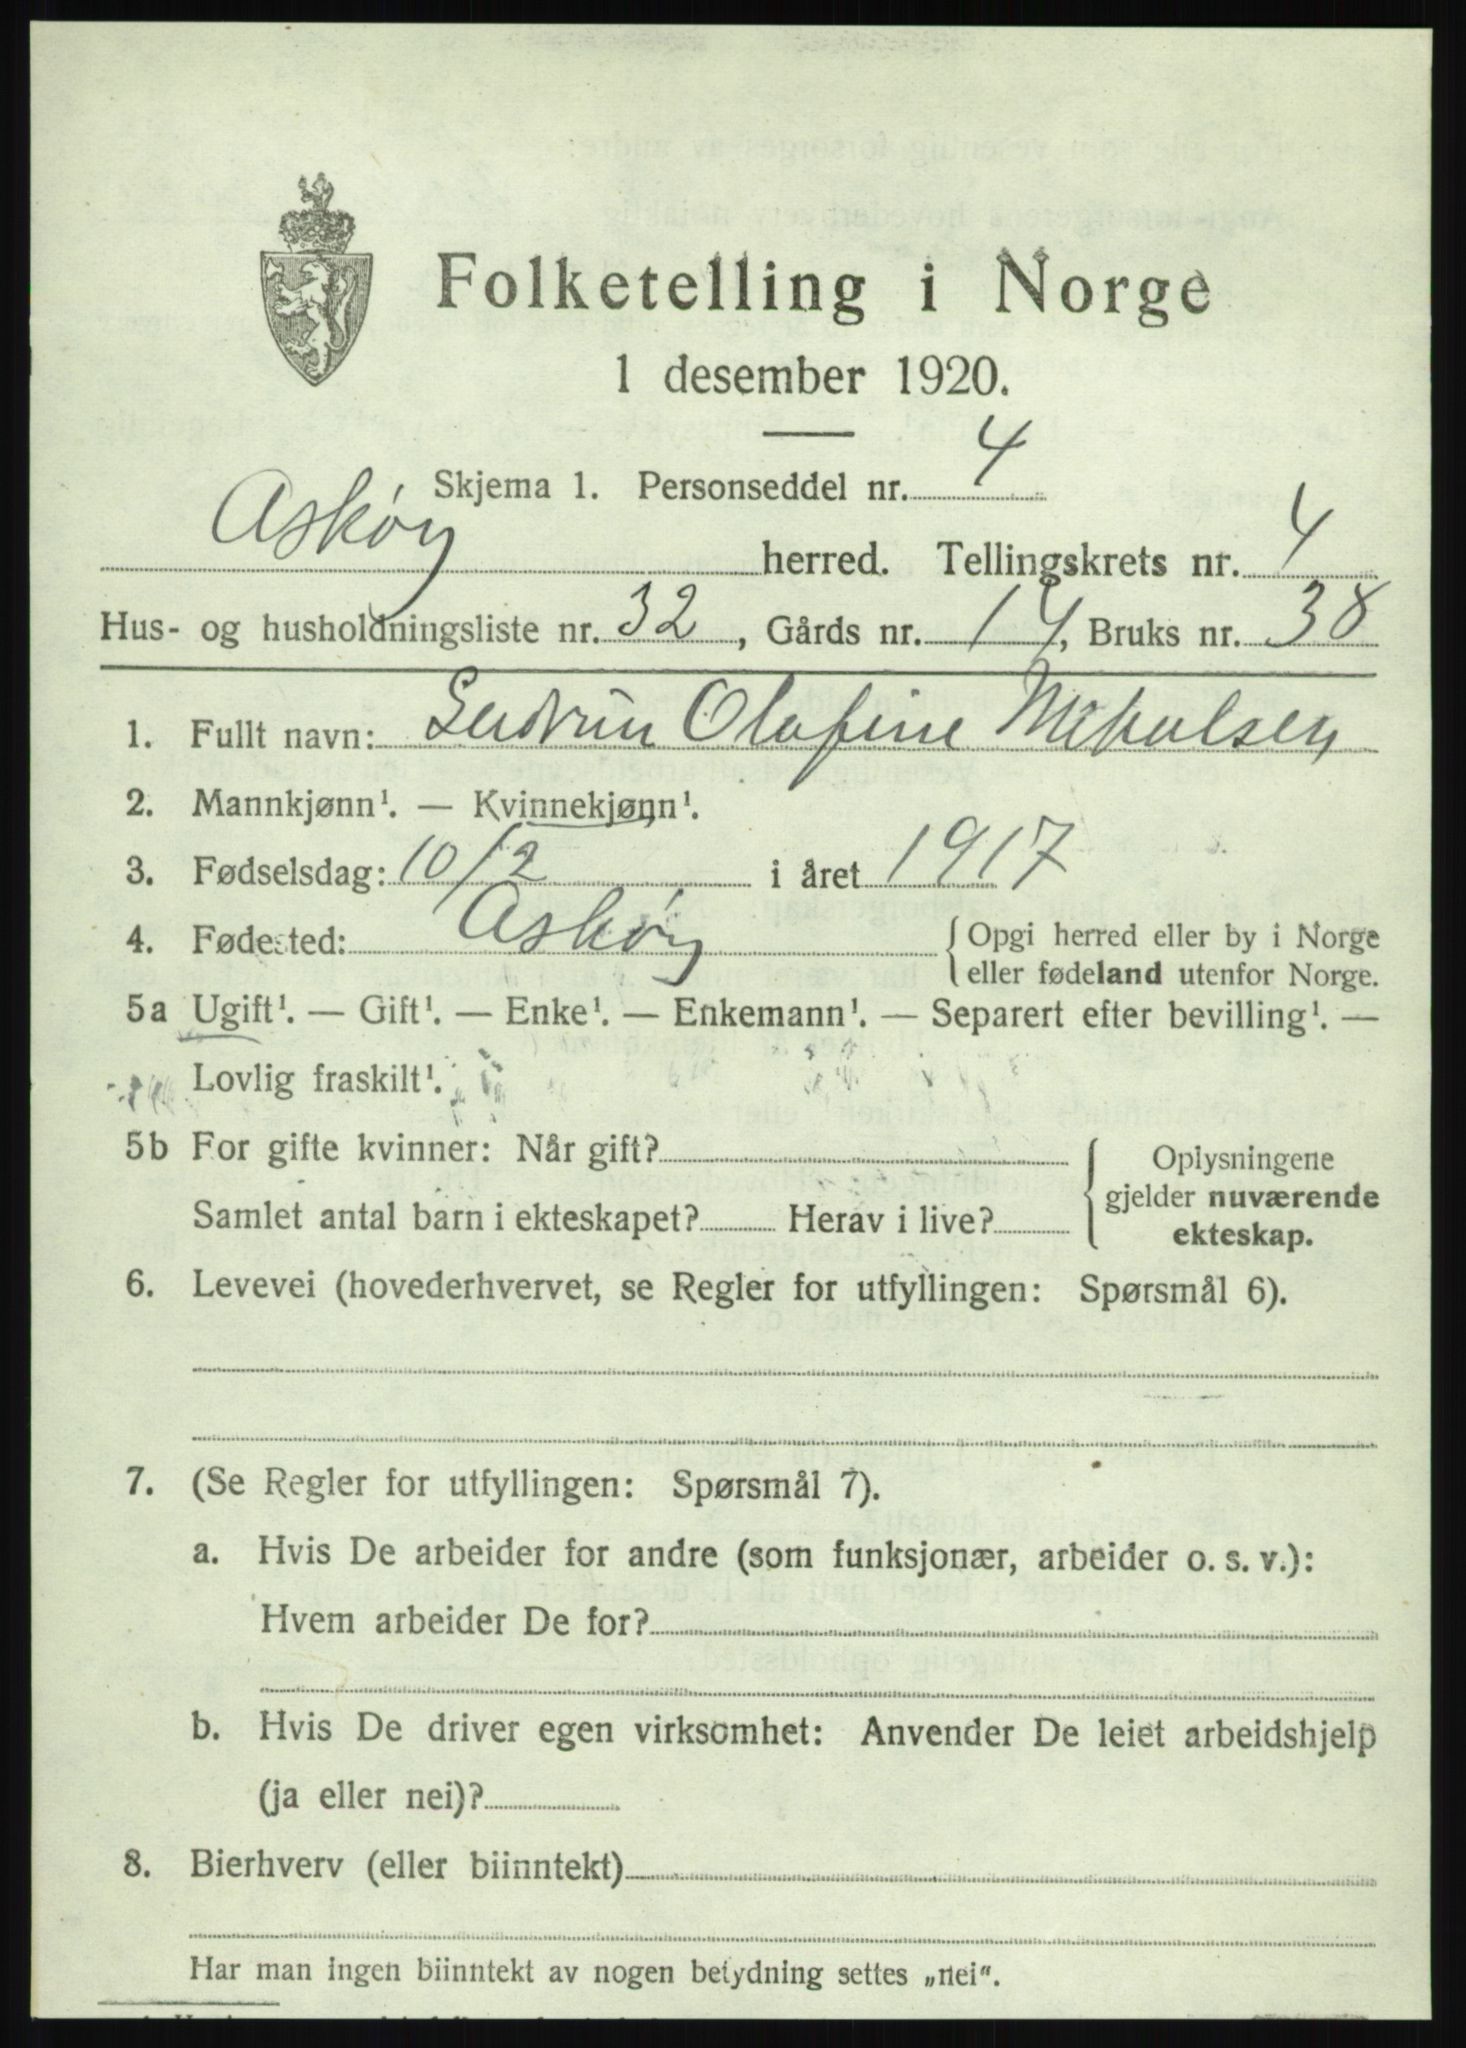 Folketelling i Norge
1 desember 1920.
Skjema 1. Personseddel nr. 4
Askøy herred. Tellingskrets nr. 4
Hus- og husholdningsliste nr. 32, Gårds nr. 14, Bruks nr. 38
1. Fullt navn: Gudrun Olafine Mikalsen
2. Mannkjønn¹. — Kvinnekjønn¹.
3. Fødselsdag: 10/2 i året 1917
4. Fødested: Askøy { Opgi herred eller by i Norge
eller fødeland utenfor Norge.
5a Ugift¹. — Gift¹. — Enke¹. — Enkemann¹. — Separert efter bevilling¹. —
Lovlig fraskilt¹.
5b For gifte kvinner: Når gift? { Oplysningene
gjelder nuværende
Samlet antal barn i ekteskapet? Herav i live?
ekteskap.
6. Levevei (hovederhvervet, se Regler for utfyllingen: Spørsmål 6).
7. (Se Regler for utfyllingen: Spørsmål 7).
a. Hvis De arbeider for andre (som funksjonær, arbeider o. s. v.):
Hvem arbeider De for?
b. Hvis De driver egen virksomhet: Anvender De leiet arbeidshjelp
(ja eller nei)?
8. Bierhverv (eller biinntekt)
Har man ingen biinntekt av nogen betydning settes „nei“.